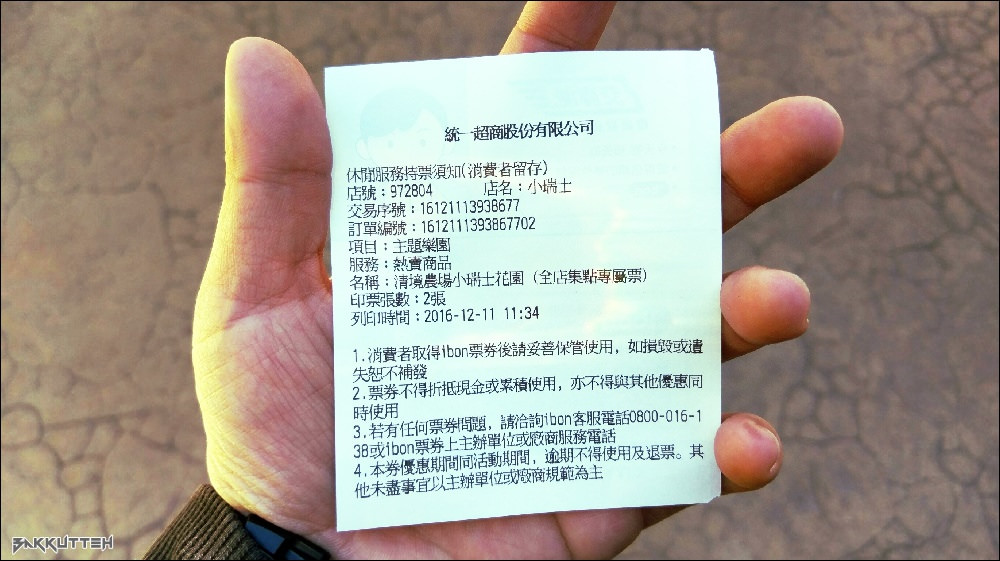 統一超商股份有限公司
休閒服務持票須知(消費者留存)
店號：972804 店名：小瑞士
交易序號：16121113938677
訂單編號：1612111393867702
項目：主題樂園
服務：熱賣商品
名稱：清境農場小瑞士花園（全店集點專屬票）
印票張數：2張
列印時間：2016-12-11 11:34
1.消費者取得ibon票券後請妥善保管使用，如損毀或遺
失恕不補發
2.票券不得折抵現金或累積使用，亦不得與其他優惠同
時使用
3.若有任何票券問題，請洽詢ibon客服電話0800-016-1
38或ibon票券上主辦單位或廠商服務電話
4.本券優惠期間同活動期間，逾期不得使用及退票。其
他未盡事宜以主辦單位或廠商規範為主
BAKKUTTEH